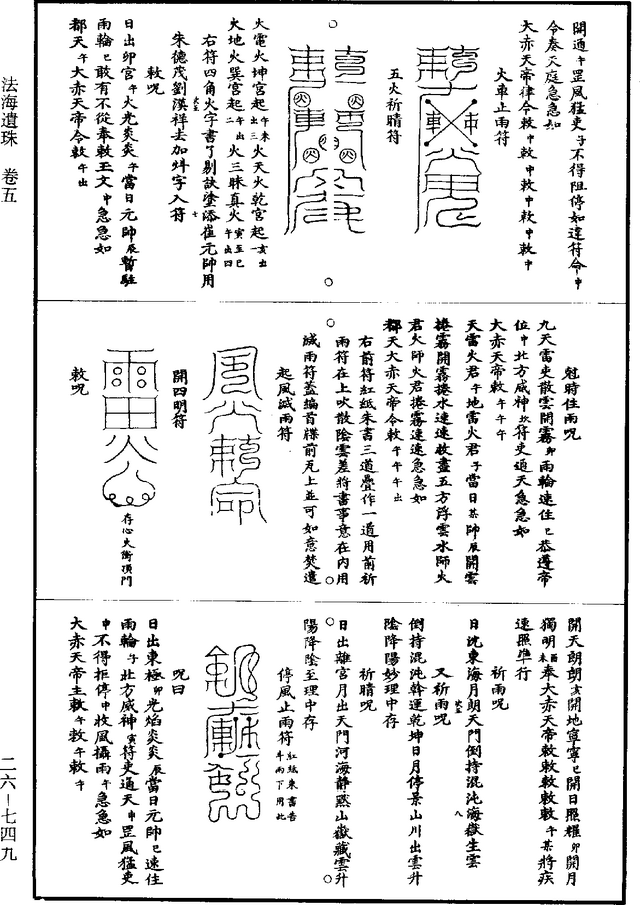 開通午罡風猛吏子不得阻停如違符令申
令奏天庭急急如
大赤天帝律令敕申敕申敕申敕申敕申
火車止雨符
五火祈晴符
火電火坤宮起午未出三火天火乾宮起亥出一
火地火巽宮起午出二火三昧真火寅至巳午出四
右符四角火字書了剔訣塗添崔元帥用
朱德茂劉漢祥去加炓字入符
敕呪
日出卯宮午火光炎炎午當日元帥辰暫駐
雨輪巳敢有不從奉敕玉文申急急如
都天午大赤天帝令敕午出
尅時住雨呪
九天雷吏散雲開霧卯雨輪速住巳恭遵帝
位申北方威神坎符吏通天急急如
大赤天帝敕午午午
天雷火君午地雷火君子當日某帥辰開雲
捲霧開霧捲水速速收盡五方浮雲水師火
君火師火君捲霧速速急急如
都天大赤天帝令敕午午午出
右前符紅紙朱書三道疊作一道用前祈
雨符在上吹散陰雲差將書事意在內用
滅雨符蓋編首牒前瓦上並可如意焚遣
起風滅雨符
開四明符
存心火衝頂門
敕呪
開天朗朗亥開地寧寧巳開日照耀卯開月
獨明酉未奉大赤天帝敕敕敕敕敕午某將疾
速照準行
祈雨呪
日沈東海月朗天門倒持混沌海嶽生雲
又祈雨呪
倒持混沌幹運乾坤日月停景山川出雲升
陰降陽妙理中存
祈晴呪
日出離宮月出天門河海靜默山嶽藏雲升
陽降陰至理中存
停風止雨符
呪曰
日出東極卯光焰炎炎辰當日元帥巳速住
雨輪子北方威神寅符吏通天申罡風猛吏
申不得拒停中收風攝雨午急急如
大赤天帝主敕午敕午敕午
法海遺珠 卷五
二六-七四九